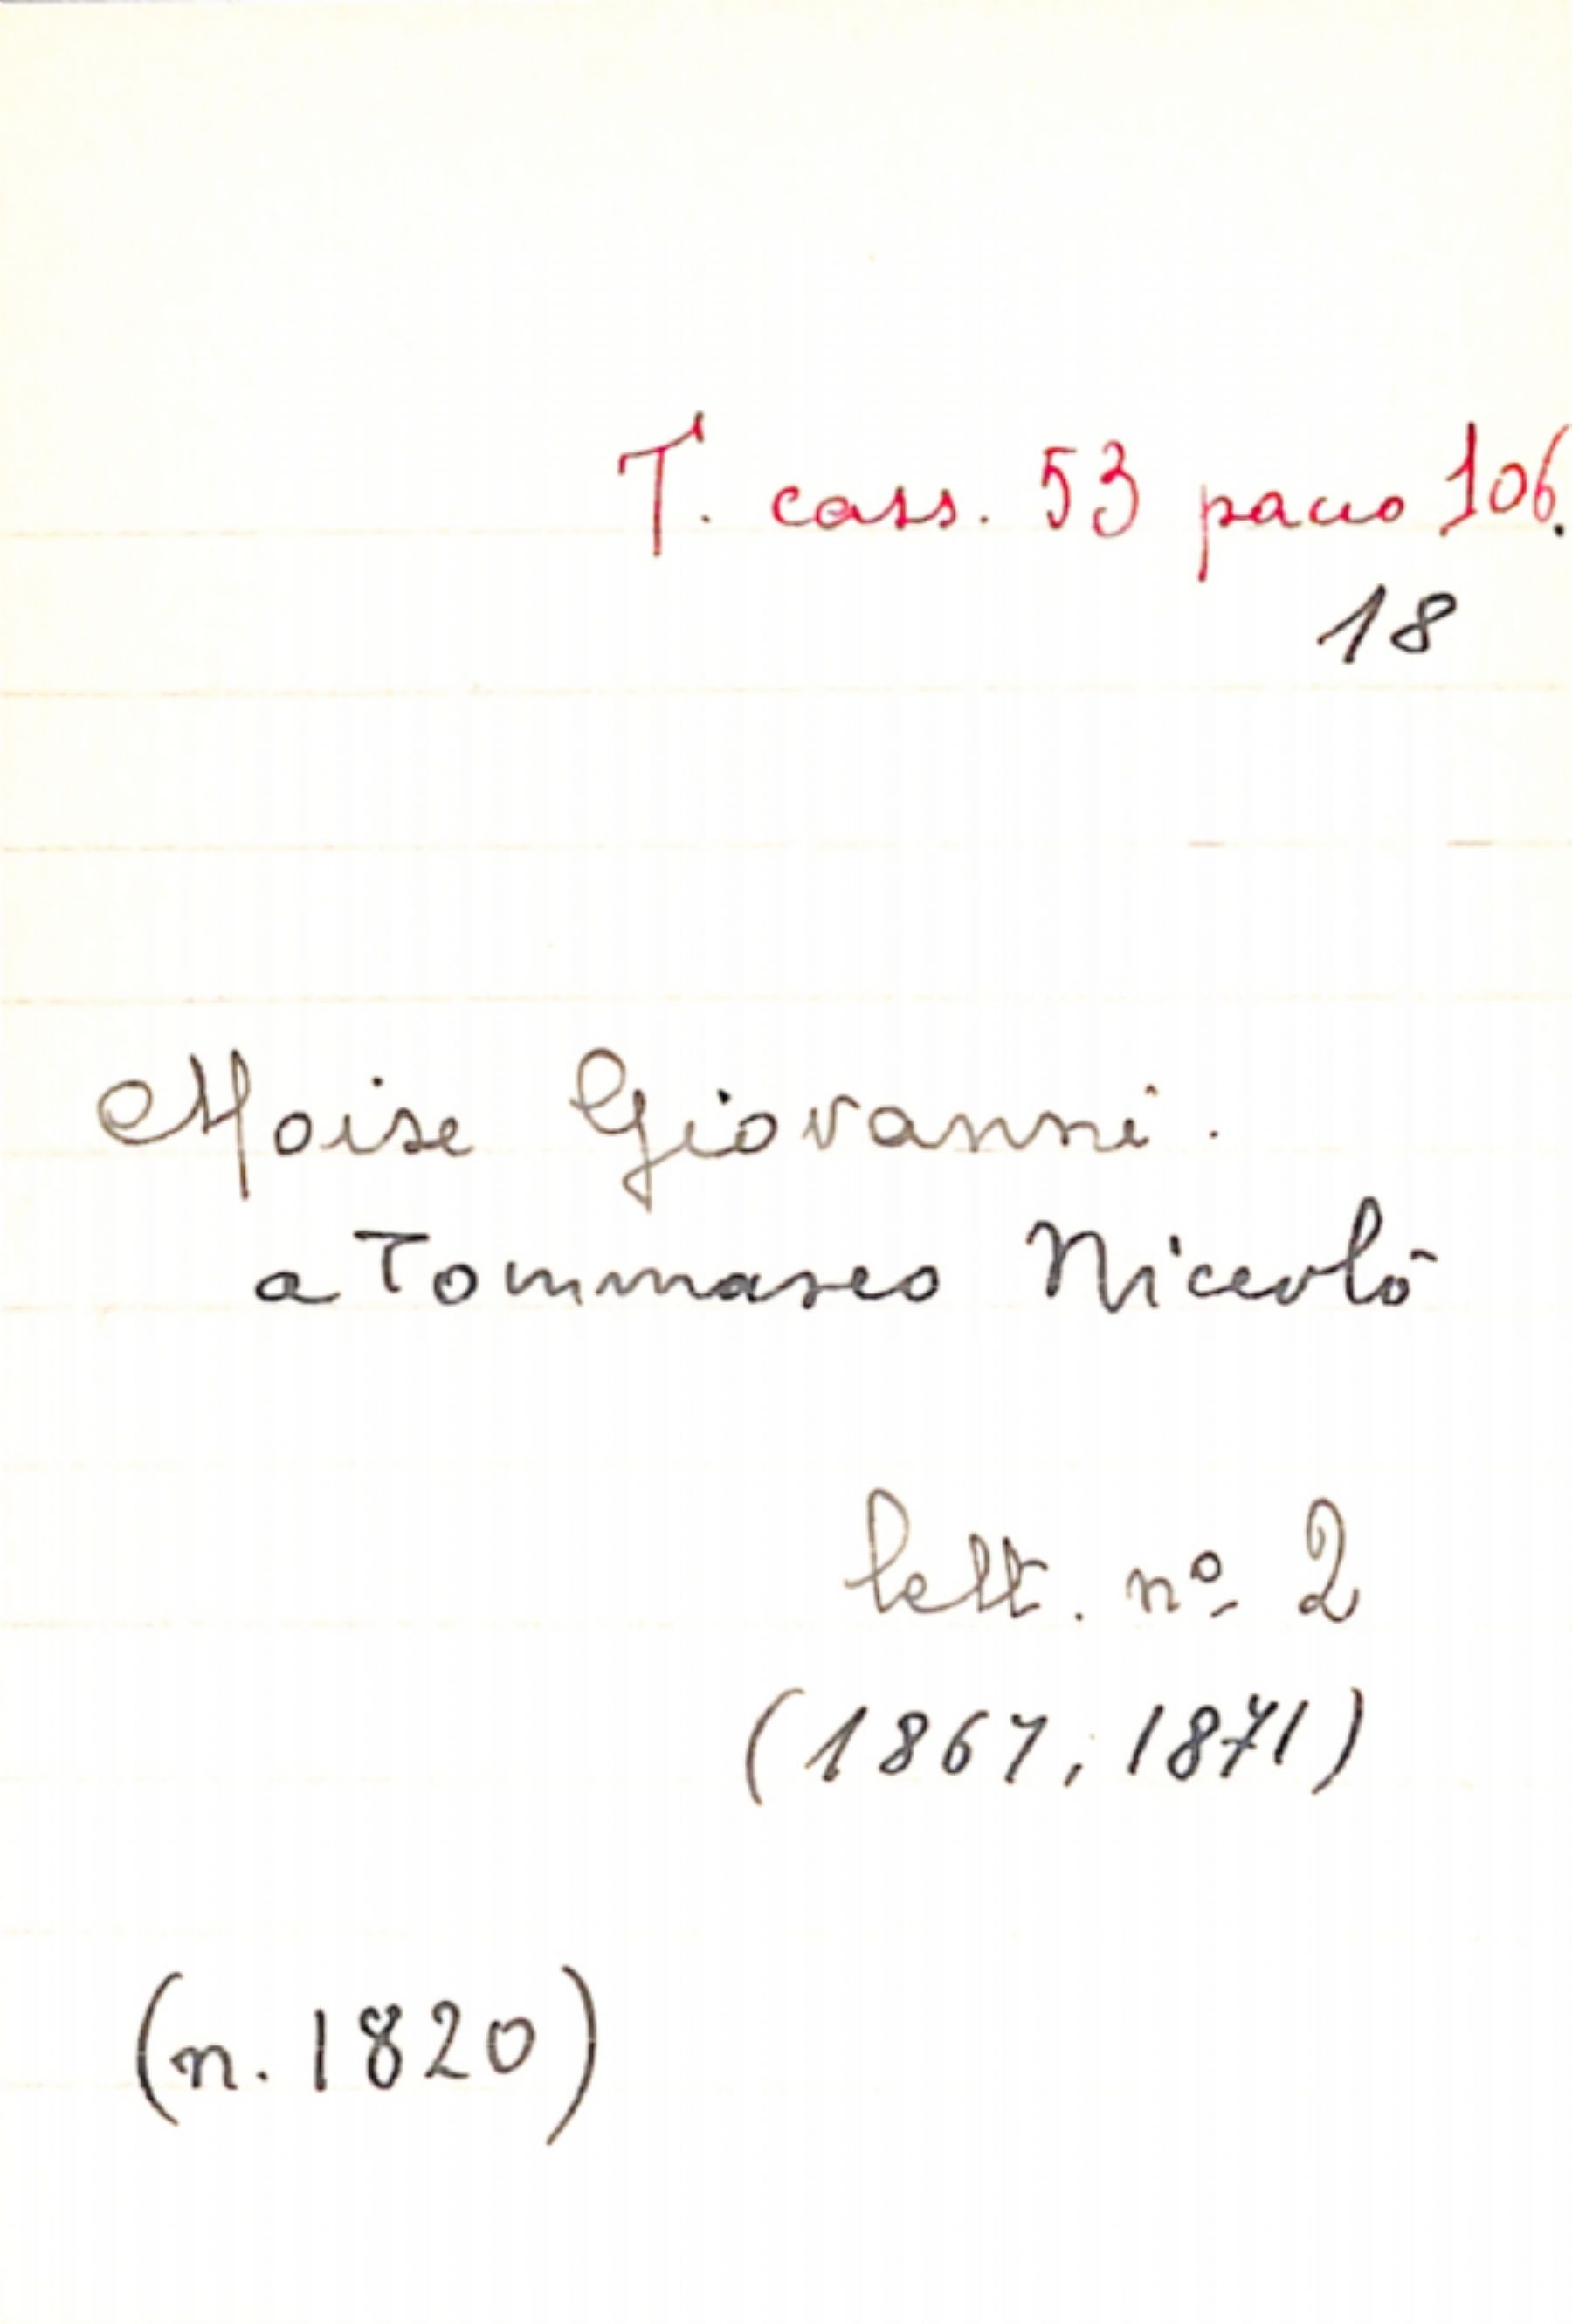 T. cass. 53 pacco 106.
18
Moise Giovanni.
a Tommaseo Niccolò
lett. nº 2
(1867, 1871)
(n. 1820)